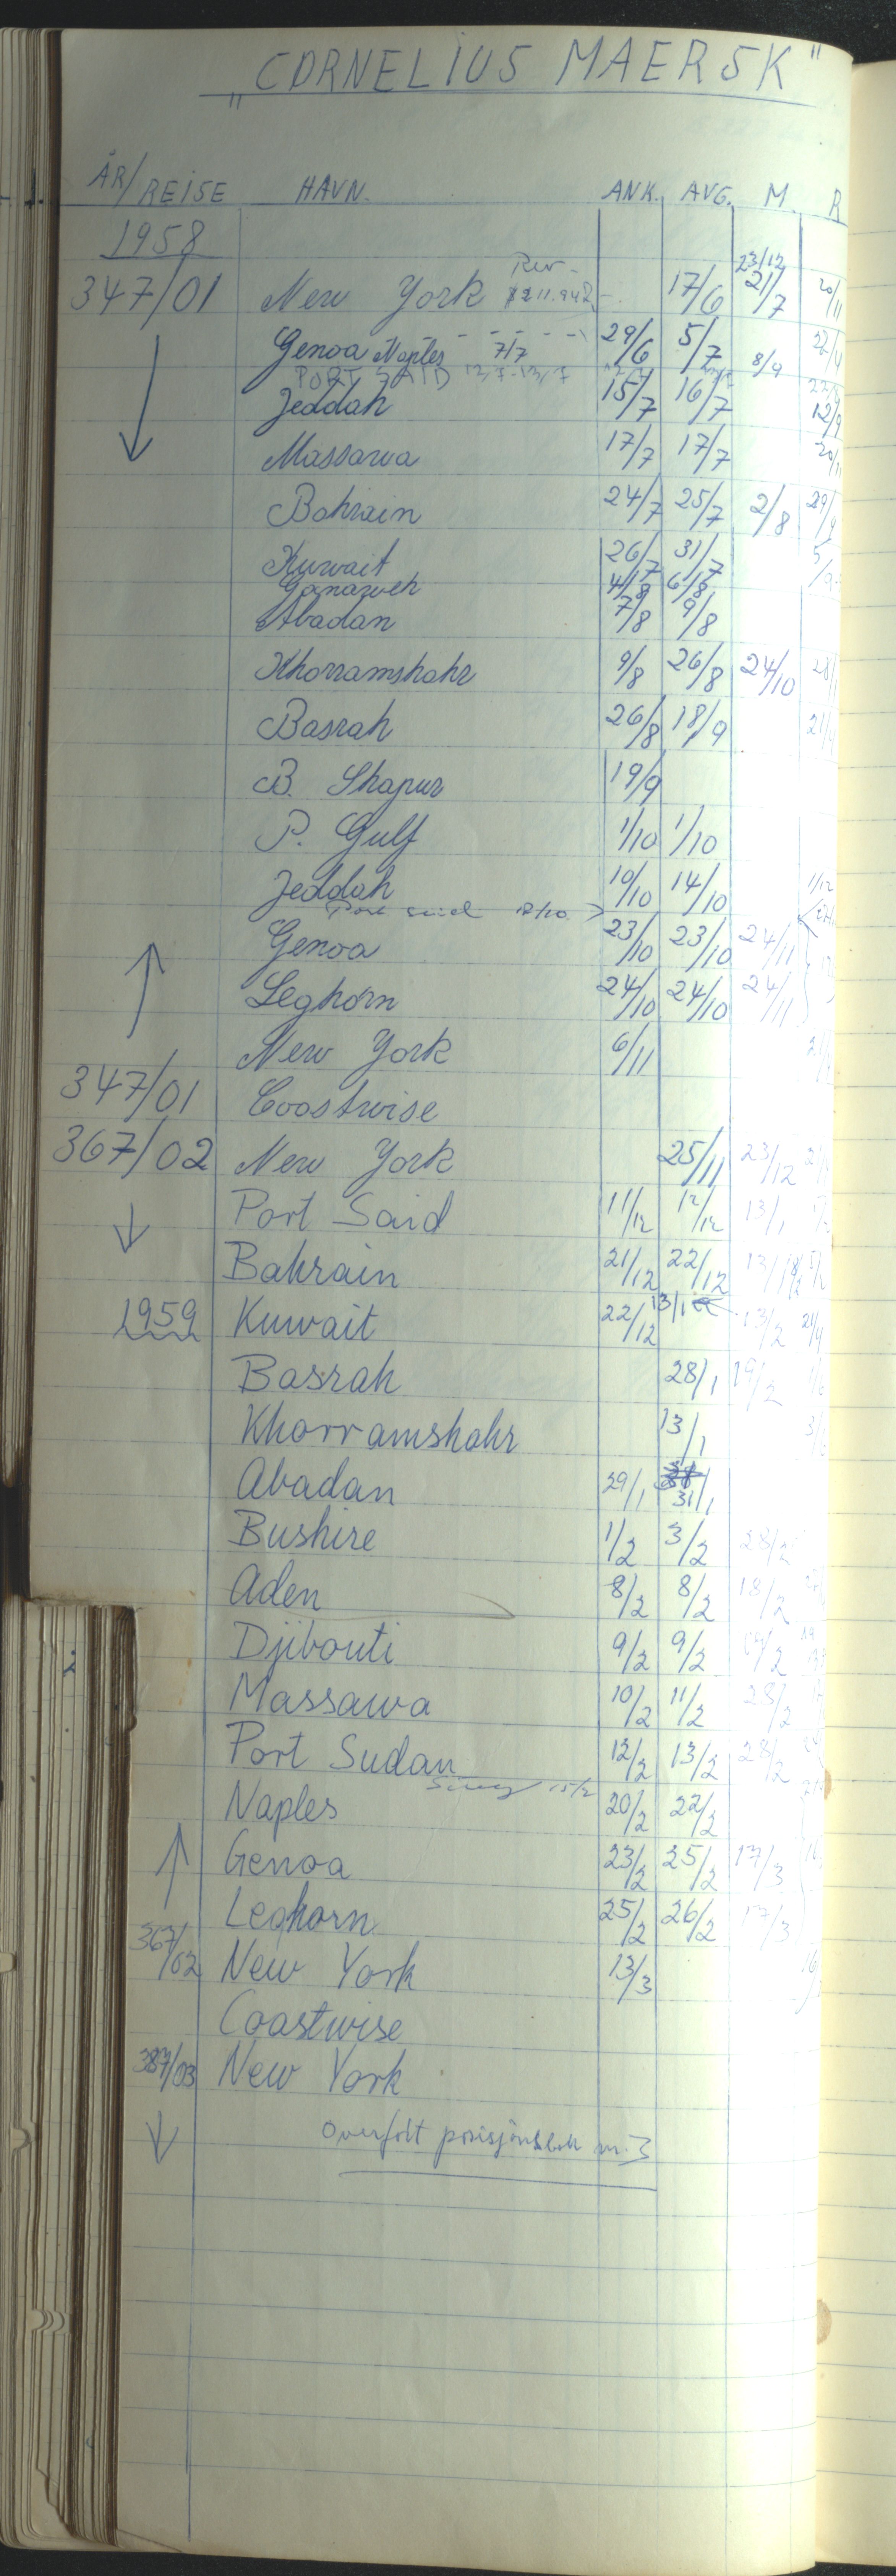 "CORNELIUS MAERSK"
ÅR/REISE HAVN. ANK. AVG. M. R
1958
23/12
347/01 New York 17/6 21/7 20/11
Genoa Naples 7/7 29/6 5/7 8/9
PORT SAID 12/7-13/7
Jeddah 15/7 16/7 12/9
Massawa 17/7 17/7
Bahrain 24/7 25/7 2/8
Kuwait 26/7 31/7
Ganaweh 4/8 6/8
Abadan 7/8 9/8
Khorramshahr 9/8 26/8 24/10
Basrah 26/8 18/9
B. Shapur 19/9
P. Gulf 1/10 1/10
Jeddah 10/10 14/10
Port Said
Genoa 23/10 23/10 24/11
Leghorn 24/10 24/10 24/11
New York 6/11
347/01 Coostwise
367/02 New York 25/11 23/12
Port Said 11/12 12/12 13/1
Bahrain 21/12 22/12 13/1
1959 Kuwait 22/12 13/1 13/2
Basrah 28/1 19/2
Khorramshahr 13/1
Abadan 29/1 31/1
Bushire 1/2 3/2 28/2
Aden 8/2 8/2 18/2
Djibouti 9/2 9/2
Massawa 10/2 11/2 28/2
Port Sudan 12/2 13/2 28/2
15/2
Naples 20/2 22/2
Genoa 23/2 25/2 17/3
Leghorn 25/2 26/2 17/3
367/02 New York 13/3
Coastwise
387/03 New York
Overført posisjonsbok nr. 3